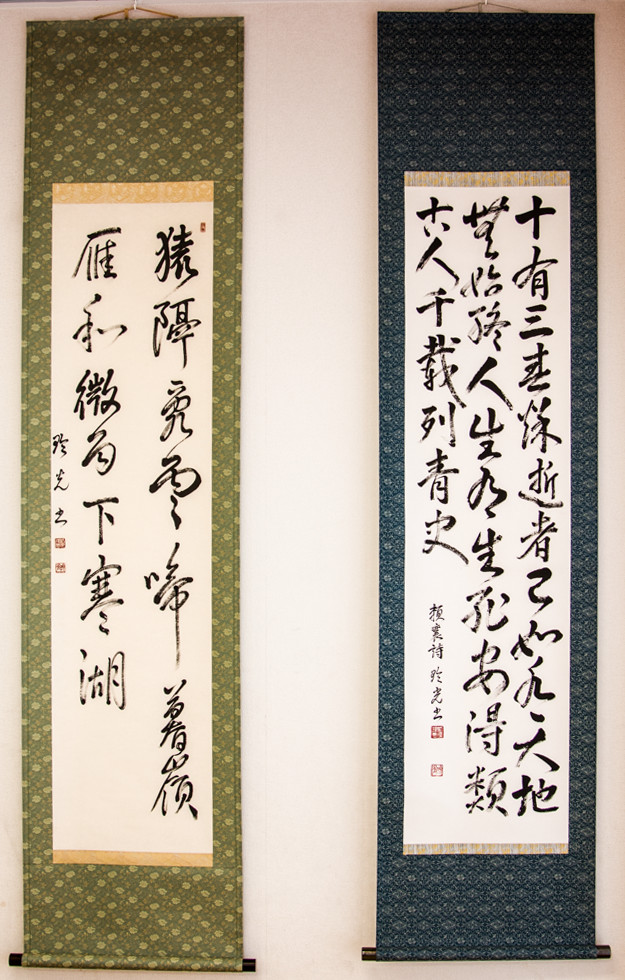 十有三春秋逝者已如水天地
無始終人生有生死安得類
古人千載列青史
頼襄詩 玲光書
猿隔亂雲啼暮嶺
雁和微雨下寒湖
玲光書